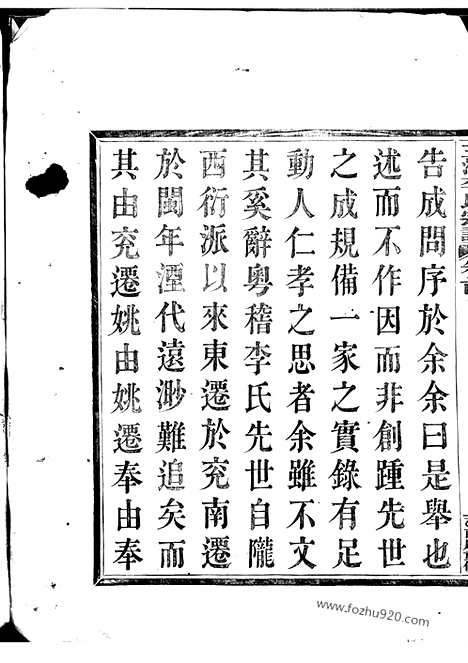 告成問序於余余曰是舉也
述而不作因而非創踵先世
之成規備一家之實錄有足
動人仁孝之思者余雖不文
其奚辭粵稽李氏先世自隴
西衍派以來東遷於兖南遷
於閩年湮代遠渺難追矣而
其由兖遷姚由姚遷奉由奉
www.fozhu920.com